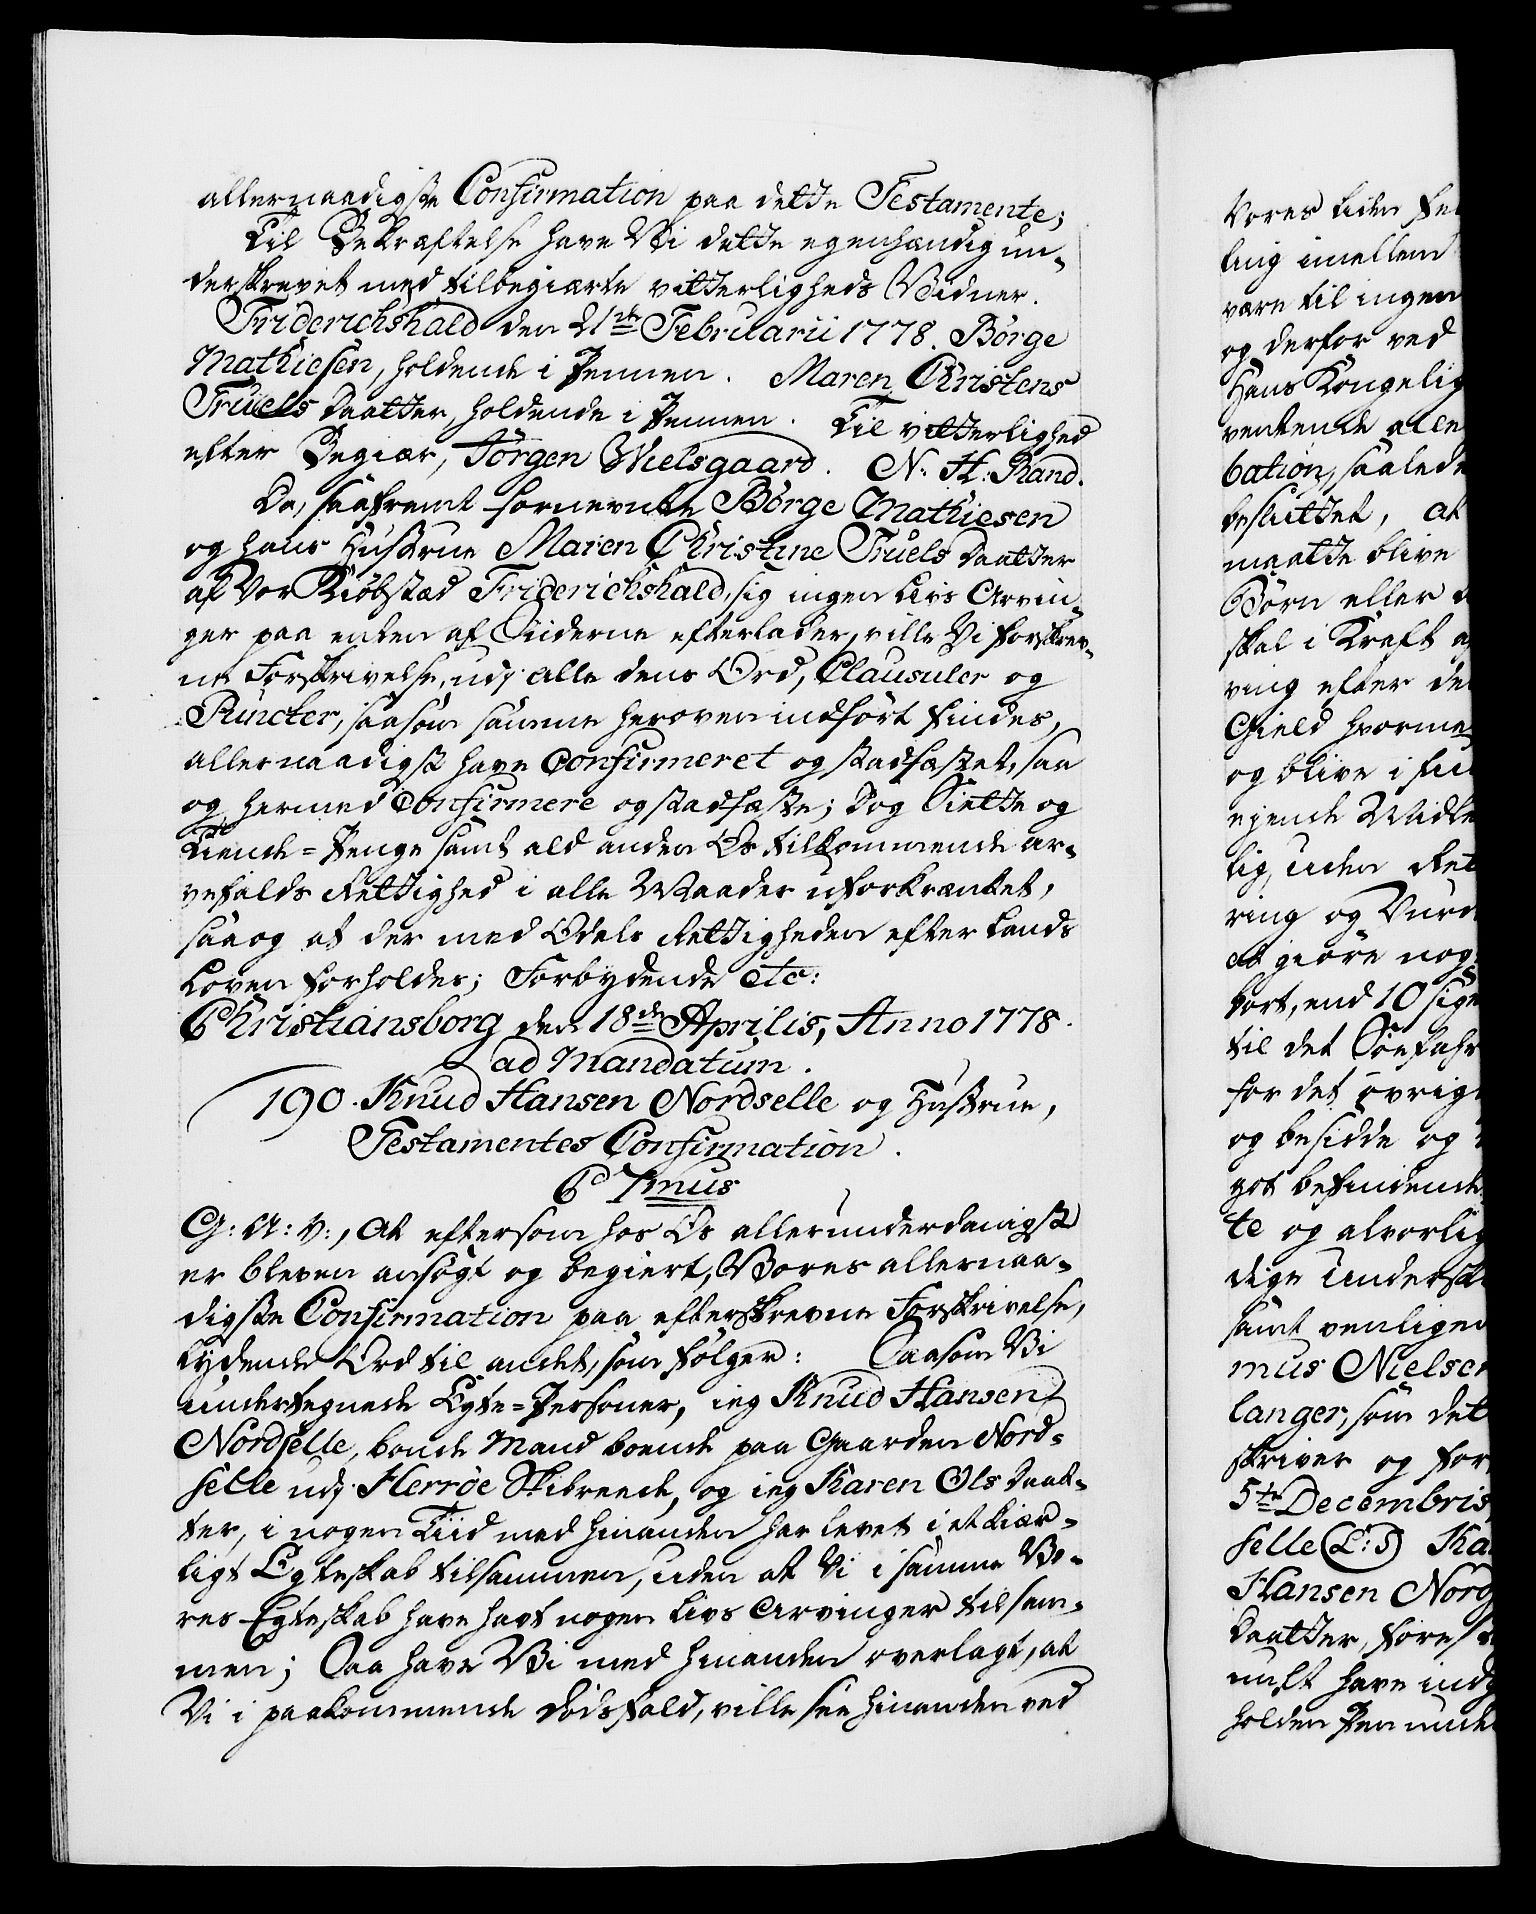 allernaadigste Confirmation paa dette Testamente;
Til Bekræftelse have Vi dette egenhændig un-
derskrevet med tilbegiærte vitterligheds Vidner.
Friderichshald den 21de Februarii 1778. Börge
Mathiesen, holdende i Pennen. Maren Christens
Truels Daatter, holdende i Pennen. Til vitterlighed
efter Begiær, Jörgen Wielsgaard. N. H. Rand.
Da, saafremt fornevnte Börge Mathiesen
og hans Hustrue Maren Christine Truels Daatter
af Vor Kiöbstæd Friderichshald, sig ingen Livs Arvin-
ger paa enten af Siiderne efterlader, ville Vi forskrev-
ne Forskrivelse, udj alle dens Ord, Clausuler og
Puncter, saasom samme heroven indfört findes,
allernaadigst have Confirmeret og stadfæstet, saa
og hermed Confirmere og stadfæste; Dog Siette og
Tiende-Penge samt ald anden Os tilkommende ar-
vefalds Rettighed i alle Maader uforkrænket,
saa og at der med Odels Rettigheden efter Lands
Loven forholdes; Forbydende etc:
Christiansborg den 18de Aprilis, Anno 1778.
ad Mandatum.
190. Knud Hansen Nordselle og Hustrue,
Testamentes Confirmation.
Cd 7mus
G: A: V:, At eftersom hos Os allerunderdanigst
er bleven ansögt og begiert, Vores allernaa-
digste Confirmation paa efterskrevne Forskrivelse,
Lydende Ord til andet, som fölger: Saasom Vi
undertegnede Egte-Personer, ieg Knud Hansen
Nordselle, bonde Mand boende paa Gaarden Nord-
selle udj Herröe Skibrede, og ieg Karen Ols Daat-
ter, i nogen Tiid med hinanden har levet i et kiær-
ligt Egteskab tilsammen, uden at Vi i samme Vo-
res Egteskab have havt nogen Livs Arvinger tilsam-
men; Saa have Vi med hinanden overlagt, at
Vi i paakommende dödsfald, ville see hinanden ved
Vores Liden
ling imellem
være til ingen
og derfor ved
Hans Kongelig
ventende alle
bation, saalede
besluttet, at
maatte blive
Börn eller
skal i Kraft
ving efter de
Gield hvorme
og blive i
ejende Midle
lig, uden Ret
ring og Vurd
at giöre nog
bort, end 10
til det Söefahr
for det övrige
og besidde og
got befindende
te og alvorlig
dige Undersk
samt venligen
mus Nielsen
langer, som det
skriver og for
5te Decembris
selle (L:S) Ka
Hansen Nord
Daatter, fore
nuft have ind
holden Pen